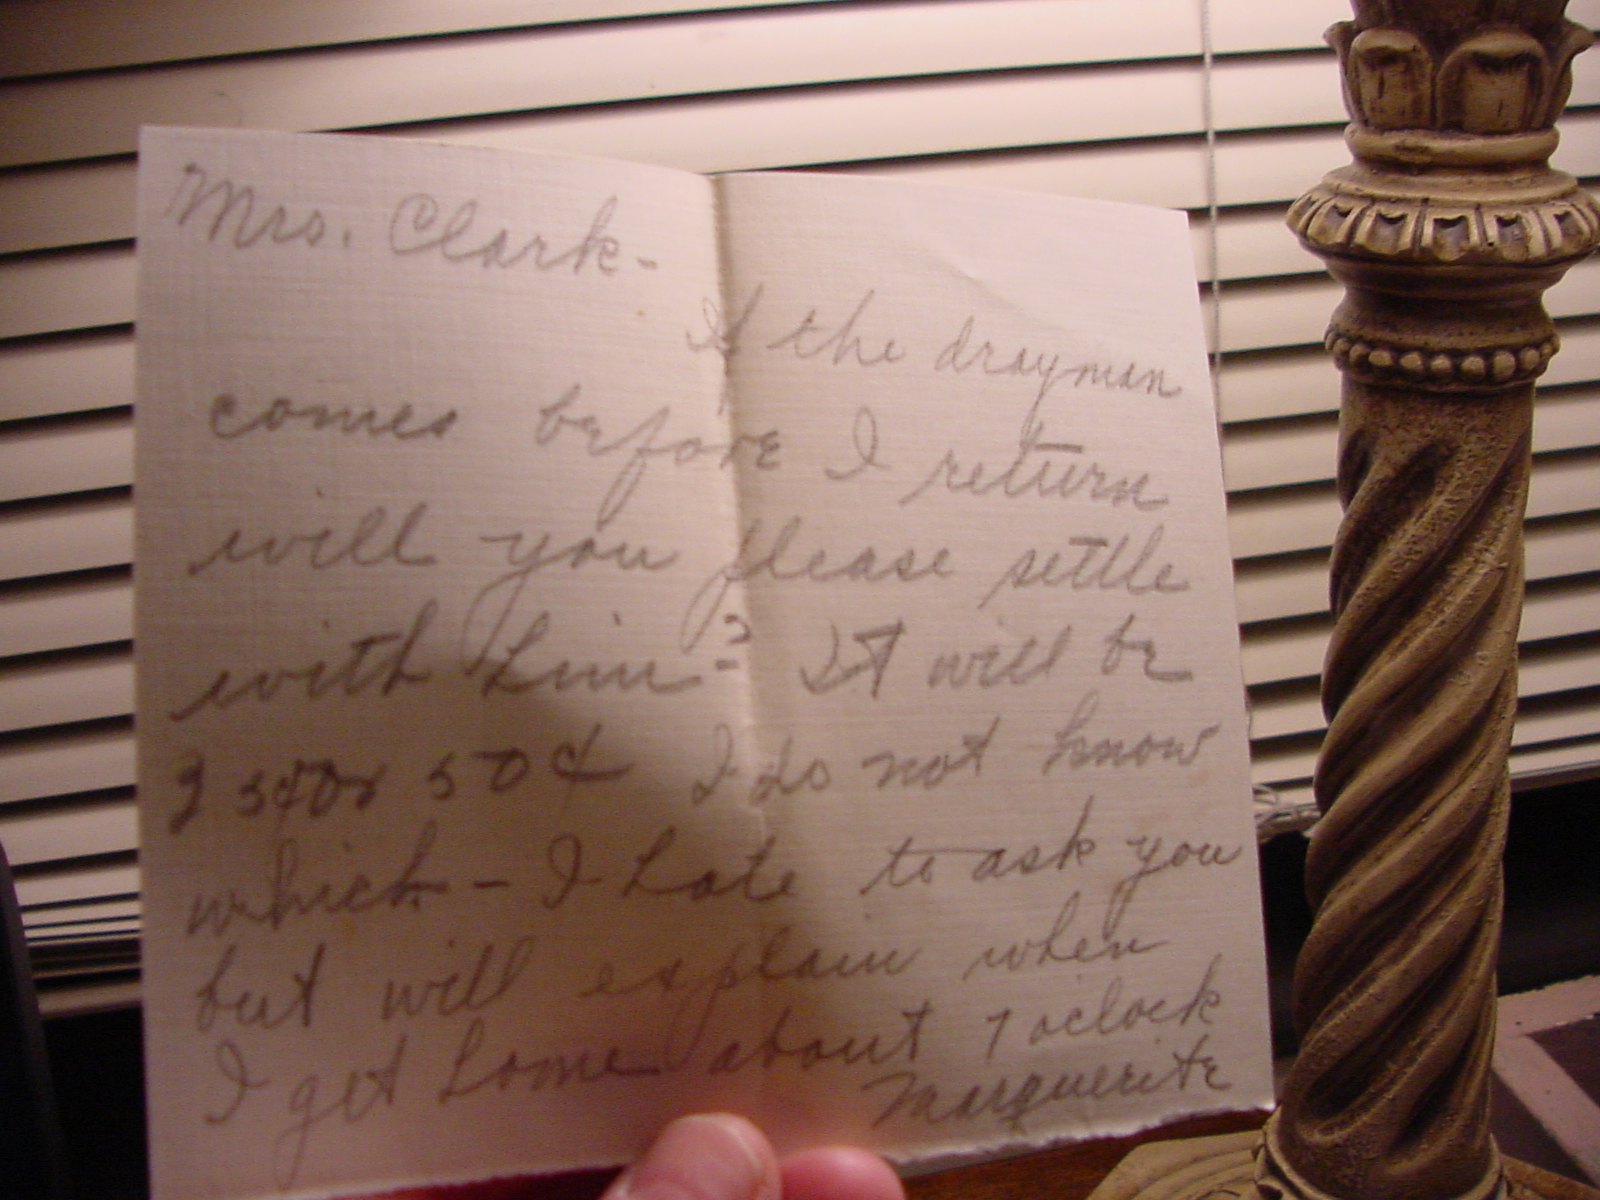 Mrs. Clark -
If the drayman
comes before I return
will you please settle
with him - ? It will be
35¢ or 50¢ I do not know
which - I hate to ask you
but will explain when
I get home about 7 oclock
Marguerite